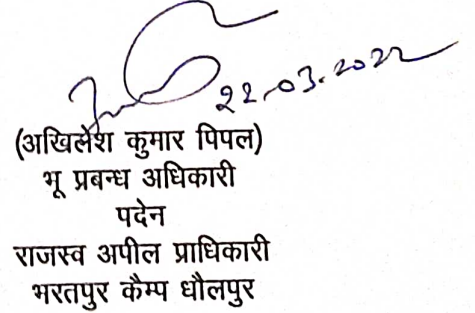 22.03.2022
(अखिलेश कुमार पिपल)
भू प्रबन्ध अधिकारी
पदेन
राजस्व अपील प्राधिकारी
भरतपुर कैम्प धौलपुर